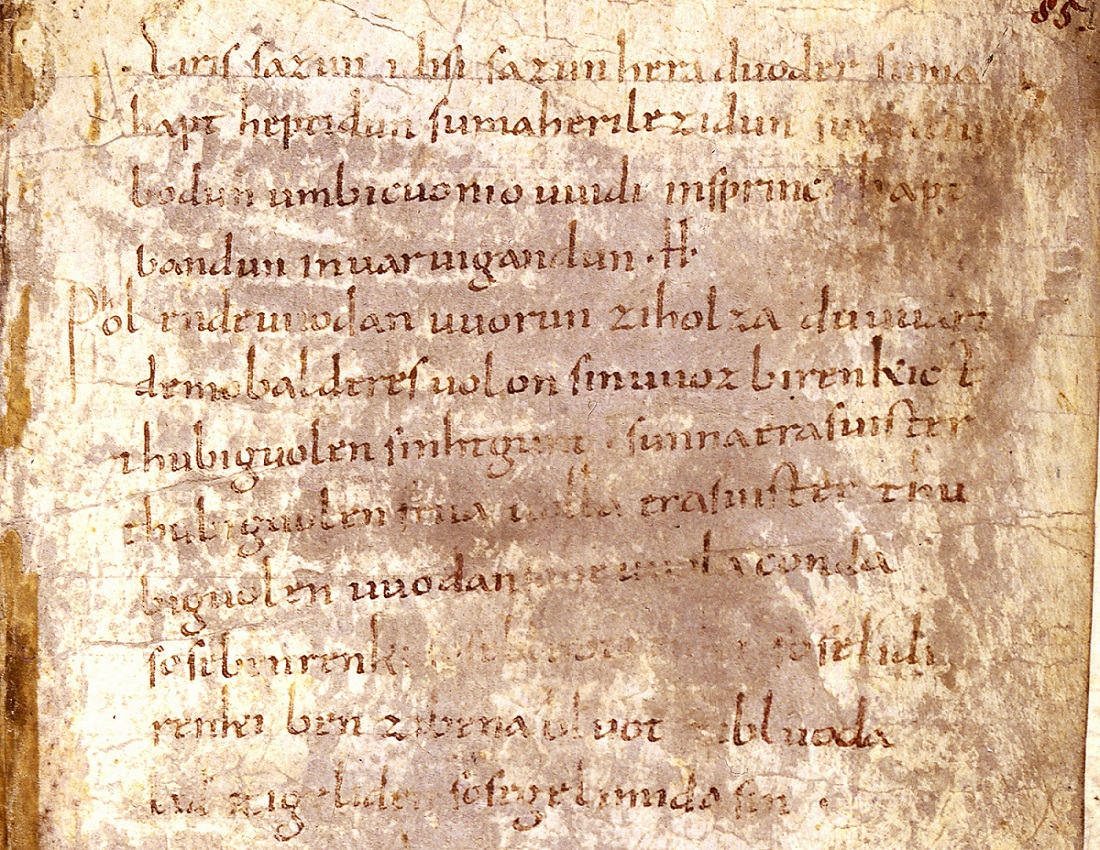 85
Eiris sazun idisi sazun hera duoder suma
hapt heptidun sumaherilezidun sumaclu
bodun umbicuonio uuidi insprinc hapt
bandun inuar uigandun · H·
Phol endeuuodan uuorun ziholza du uuart
demobalderes uolon sinuuoz birenkict
thubiguolen sinhtgunt · sunnaerasuister
thubiguolen friia uolla erasuister thu
biguolen uuodan sohe uuolaconda
sosebenrenki sosebluotrenki soselidi
renki ben zibena bluot zibluoda
lid zigeliden sosegelimida sin ·